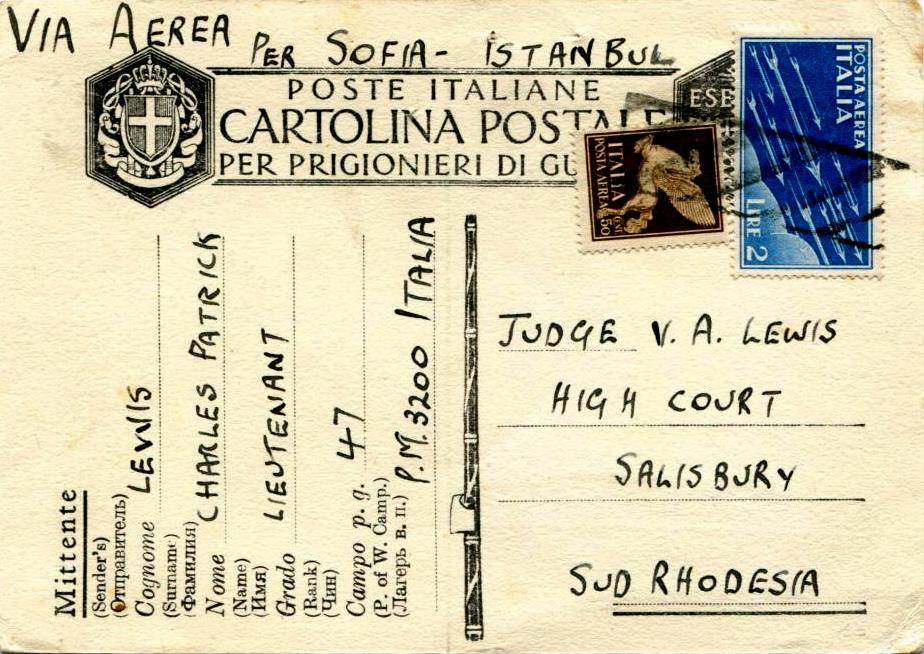 VIA AEREA PER SOFIA - ISTANBUL
POSTE ITALIANE
CARTOLINA POSTALE
PER PRIGIONIERI DI GU
ESE
POSTA AEREA
ITALIA
LIRE 2
ITALIA
POSTA AEREA
CENT 50
Mittente
(Sender's)
(Отправитель)
Cognome LEWIS
(Surname)
(Фамилия)
Nome CHARLES PATRICK
(Name)
(Имя)
Grado LIEUTENANT
(Rank)
(Чин)
Campo p. g. 47
(P. of W. Camp.)
(Лагерь в. п.) P.M. 3200 ITALIA
JUDGE V. A. LEWIS
HIGH COURT
SALISBURY
SUD RHODESIA